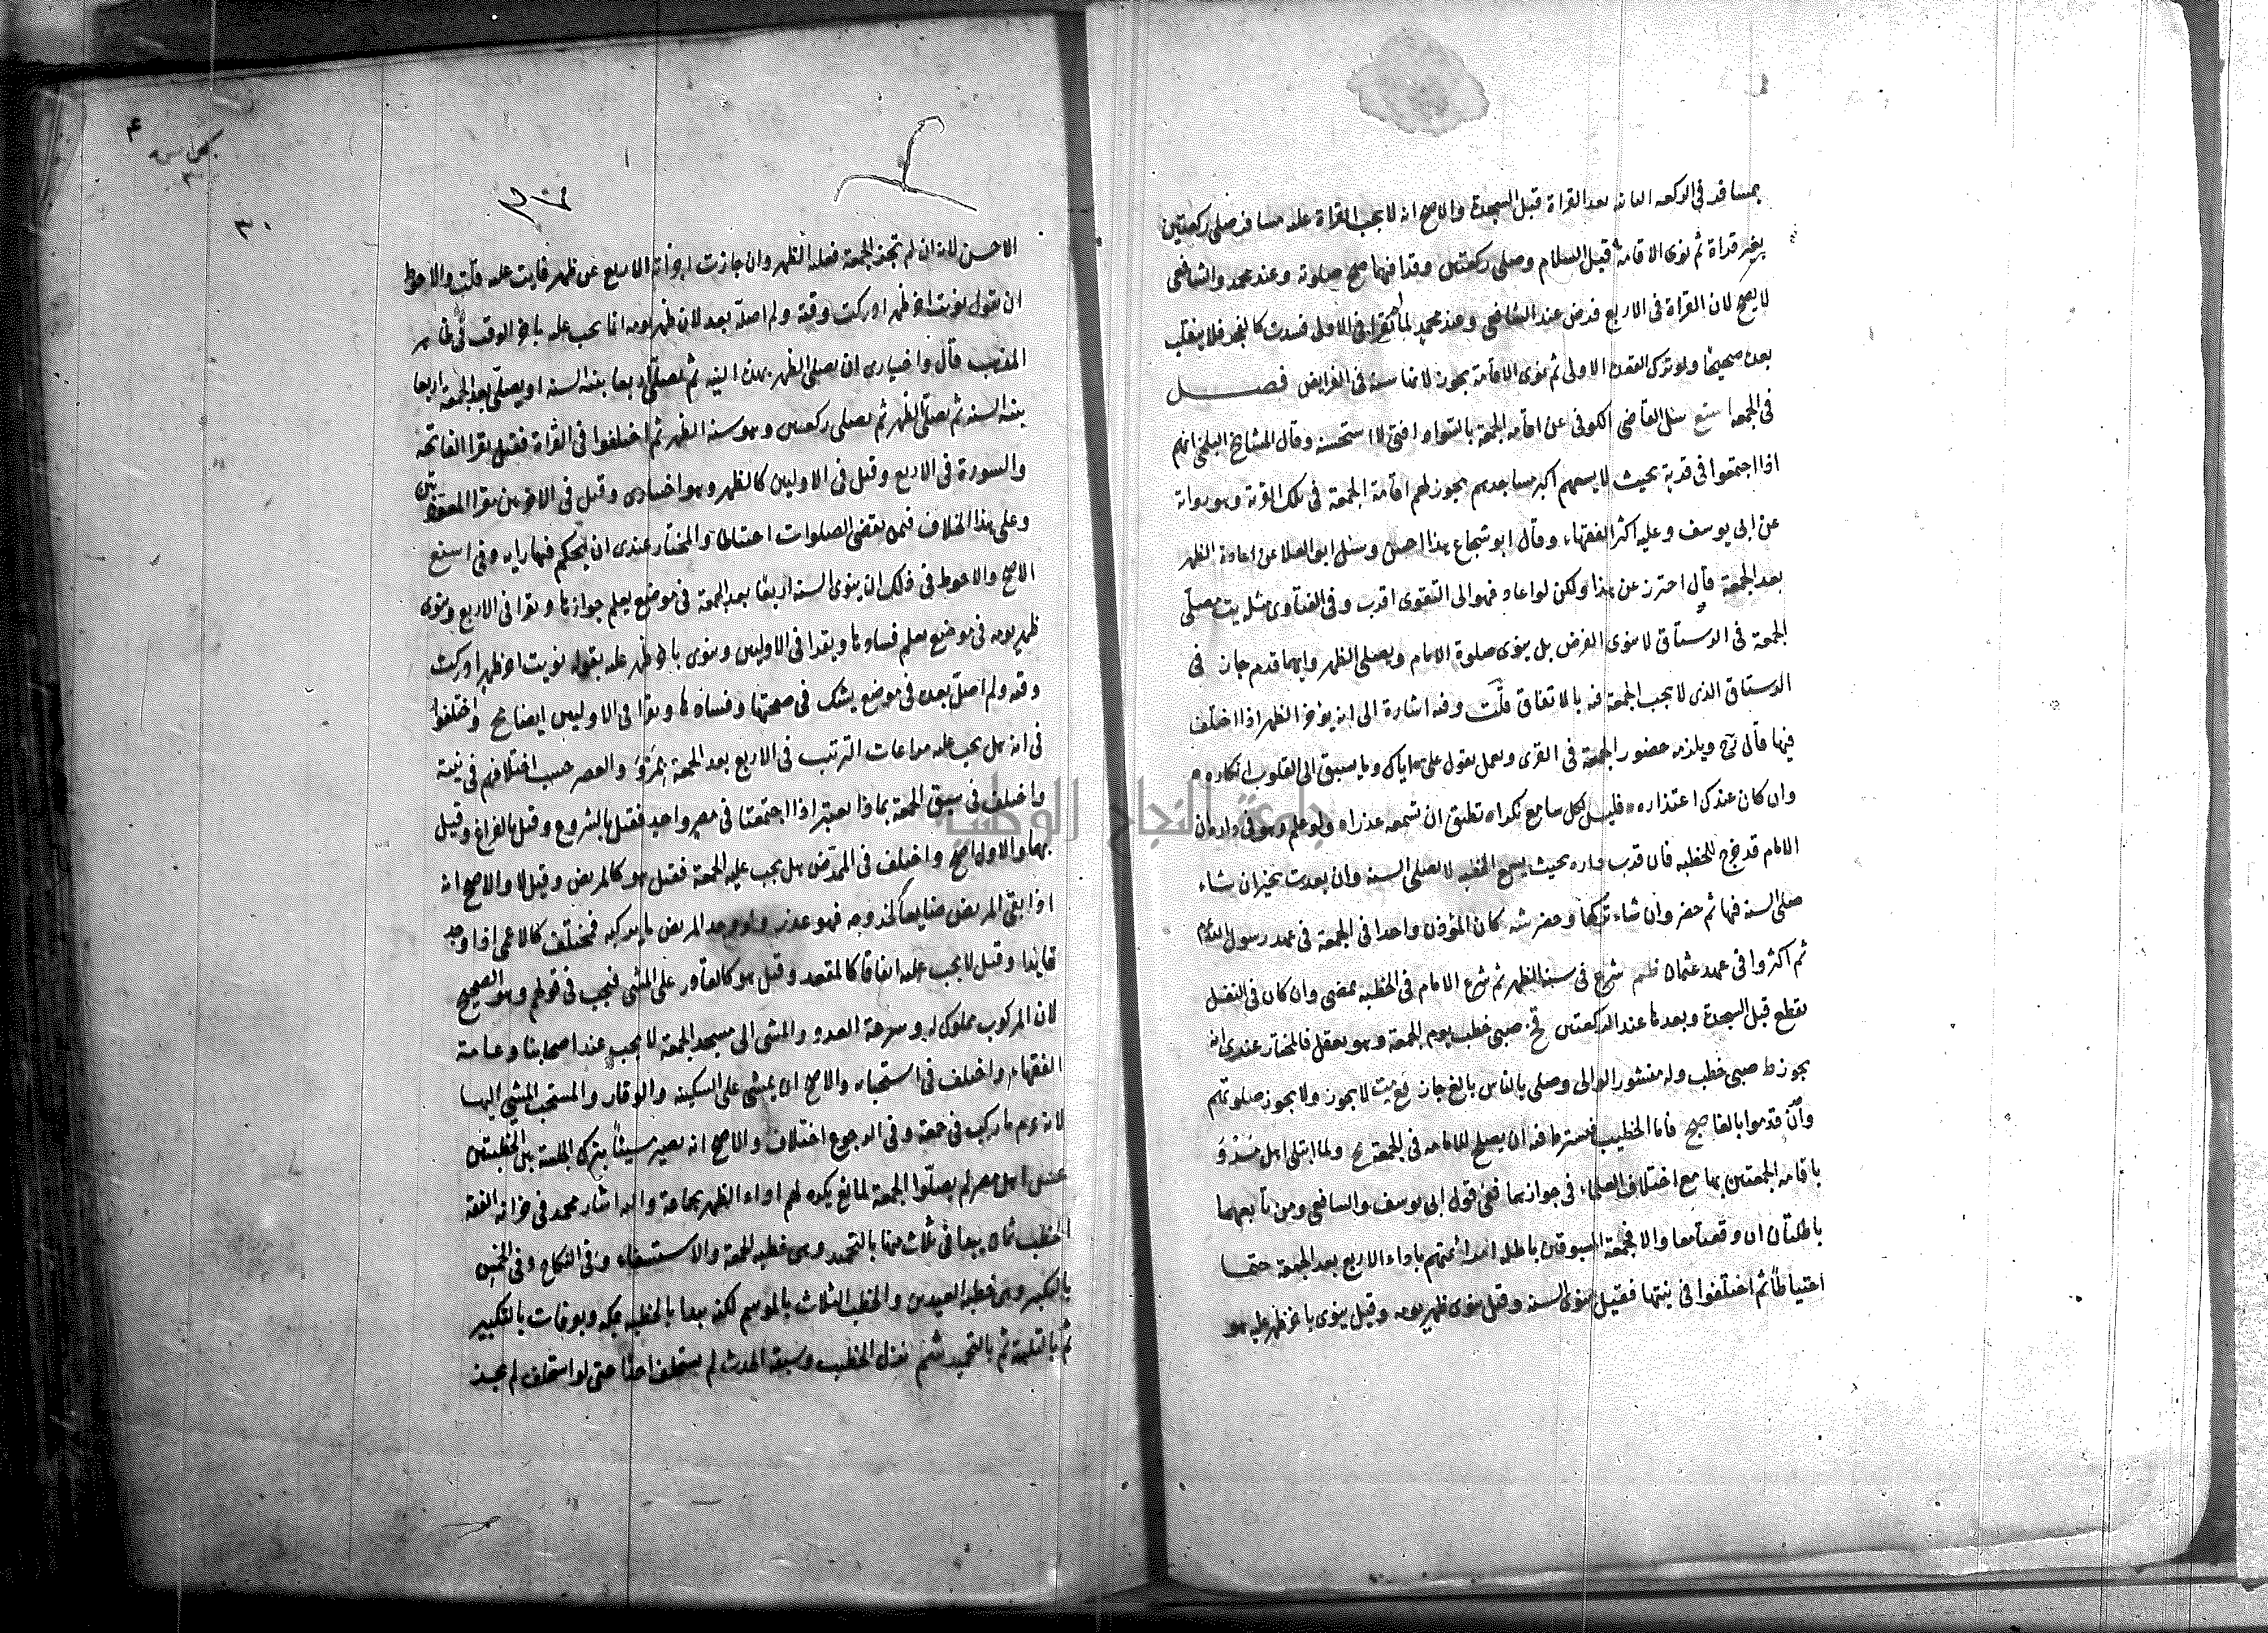 بمسافر فى الركعة الثانية بعد القراة قبل السجدة والاصح انه لا يجب القراة عليه مسافر صلى ركعتين
بغير قراة ثم نوى الاقامة قبل السلام وصلى ركعتين وقرا فيهما صح صلوته وعند محمد والشافعى
لا يصح لان القراة فى الاربع فرض عند الشافعى وعند محمد لما لم يقرا فى الاولى فسدت كالفجر فلا ينقلب
بعده صحيحا ولو ترك القعدة الاولى ثم نوى الاقامة يجوز لانها سنة فى الفرايض فصل
فى الجمعة سئل القاضى الكوفى عن اقامة الجمعة وقال المشايخ البلخى انهم
اذا اجتمعوا فى قرية بحيث لا يسعهم اكبر مساجدهم يجوز لهم اقامة الجمعة فى تلك القرية وهو رواية
عن ابى يوسف وعليه اكثر الفقهاء وقال ابو شجاع هذا احسن وسئل ابو العلا عن اعادة الظهر
بعد الجمعة قال احترز عن هذا ولكن لو اعاد فهو الى التقوى اقرب وفى الفتاوى مصلى
الجمعة فى الرستاق لا ينوى الفرض بل ينوى صلوة الامام ويصلى الظهر وايهما قدم جاز فى
الرستاق الذى لا يجب الجمعة فيه بالاتفاق قلت وفيه اشارة الى انه يؤخر الظهر اذا اختلف
فيها قال ويلزمه حضور الجمعة فى القرى ويعمل بقول على اياك وما يسبق الى القلوب انكاره
وان كان عندك اعتذاره فليس كل سامع نكراه تطيق ان تسمعه عذراه ولو علم وهو فى داره ان
الامام قد خرج للخطبة فان قرب داره بحيث يسمع الخطبة لا يصلى السنة وان بعدت يخير ان شاء
صلى السنة فيها ثم حضر وان شاء تركها وحضر كان المؤذن واحدا فى الجمعة فى عهد رسول الله
ثم اكثروا فى عهد عثمان شرع فى سنة الظهر ثم شرع الامام فى الخطبة يمضى وان كان فى النفل
يقطع قبل السجدة وبعدها عند الركعتين صبى خطب يوم الجمعة وهو يعقل فالمختار عندى انه
يجوز ط صبى خطب وله منشور الوالى وصلى بالناس بالغ جاز لا يجوز ولا يجوز صلوتهم
وان قدموا بالغا صح فاما الخطيب فيشترط فيه ان يصلح للامامة فى الجمعة ولما ابتلى اهل مرو
باقامة الجمعتين بها مع اختلاف العلماء فى جوازهما ففى قول ابى يوسف والشافعى ومن تابعهما
باطلتان ان وقعتا معا والا فجمعة المسبوقين باطلة امر ائمتهم باداء الاربع بعد الجمعة حتما
احتياطا ثم اختلفوا فى نيتها فقيل ينوى السنة وقيل ينوى ظهر يومه وقيل ينوى باخر ظهر عليه هو
٣٠
الاحسن لانه ان لم تجز الجمعة فعليه الظهر وان جازت اجزأته الاربع عن ظهر فايت عليه قلت والاحوط
ان يقول نويت اخر ظهر ادركت وقته ولم اصله بعد لان ظهر يومه انما يجب عليه باخر الوقت فى ظاهر
المذهب قال واختيارى ان يصلى الظهر بهذه النية ثم يصلى اربعا بنية السنة او يصلى بعد الجمعة اربعا
بنية السنة ثم يصلى الظهر ثم يصلى ركعتين وهو سنة الظهر ثم اختلفوا فى القراة فقيل يقرا الفاتحة
والسورة فى الاربع وقيل فى الاوليين كالظهر وهو اختيارى وقيل فى الاخريين يقرا المعوذتين
وعلى هذا الخلاف فيمن يقضى الصلوات احتياطا والمختار عندى ان يحكم فيها رايه وفى
الاصح والاحوط فى ذلك ان ينوى السنة اربعا بعد الجمعة فى موضع يعلم جوازها ويقرا فى الاربع وينوى
ظهر يومه فى موضع يعلم فسادها ويقرا فى الاوليين وينوى باخر ظهر عليه بقوله نويت اخر ظهر ادركت
وقته ولم اصل بعده فى موضع يشك فى صحتها وفسادها ويقرا فى الاوليين ايضا واختلفوا
فى انه هل يجب عليه مراعات الترتيب فى الاربع بعد الجمعة بمرو والعصر حسب اختلافهم فى نيته
واختلف فى سبق الجمعة بماذا يعتبر اذا اجتمعتا فى مصر واحد فقيل بالشروع وقيل بالفراغ وقيل
بهما والاول اصح واختلف فى الممرض هل يجب عليه الجمعة فقيل هو كالمريض وقيل لا والاصح انه
اذا بقى المريض ضايعا لخروجه فهو عذر ولو وجد المريض ما يركبه فمختلف كالاعمى اذا وجد
قايدا وقيل لا يجب عليه اتفاقا كالمقعد وقيل هو كالقادر على المشى فيجب فى قولهم وهو الصحيح
لان المركوب مملوك له وسرعة العدو والمشى الى مسجد الجمعة لا يجب عند اصحابنا وعامة
الفقهاء واختلف فى استحبابه والاصح ان يمشى على السكينة والوقار والمستحب المشى اليها
لانه عم ما ركب فى جمعة وفى الرجوع اختلاف والاصح انه يصير مسيئا بترك الجلسة بين الخطبتين
اهل مصر لم يصلوا الجمعة لمانع يكره لهم اداء الظهر بجماعة واليه اشار محمد فى خزانة الفقه
الخطب ثمان يبدا فى ثلاث منها بالتحميد وهى خطبة الجمعة والاستسقاء وفى النكاح وفى الخمس
بالتكبير وهى خطبة العيدين والخطب الثلاث بالموسم لكنه يبدا بالخطبة بمكة وبعرفات بالتكبير
ثم بالتلبية ثم بالتحميد نزل الخطيب وسبقه الحدث لم يستخلف احدا حتى لو استخلف لم يجز
جامعة النجاح الوطنية